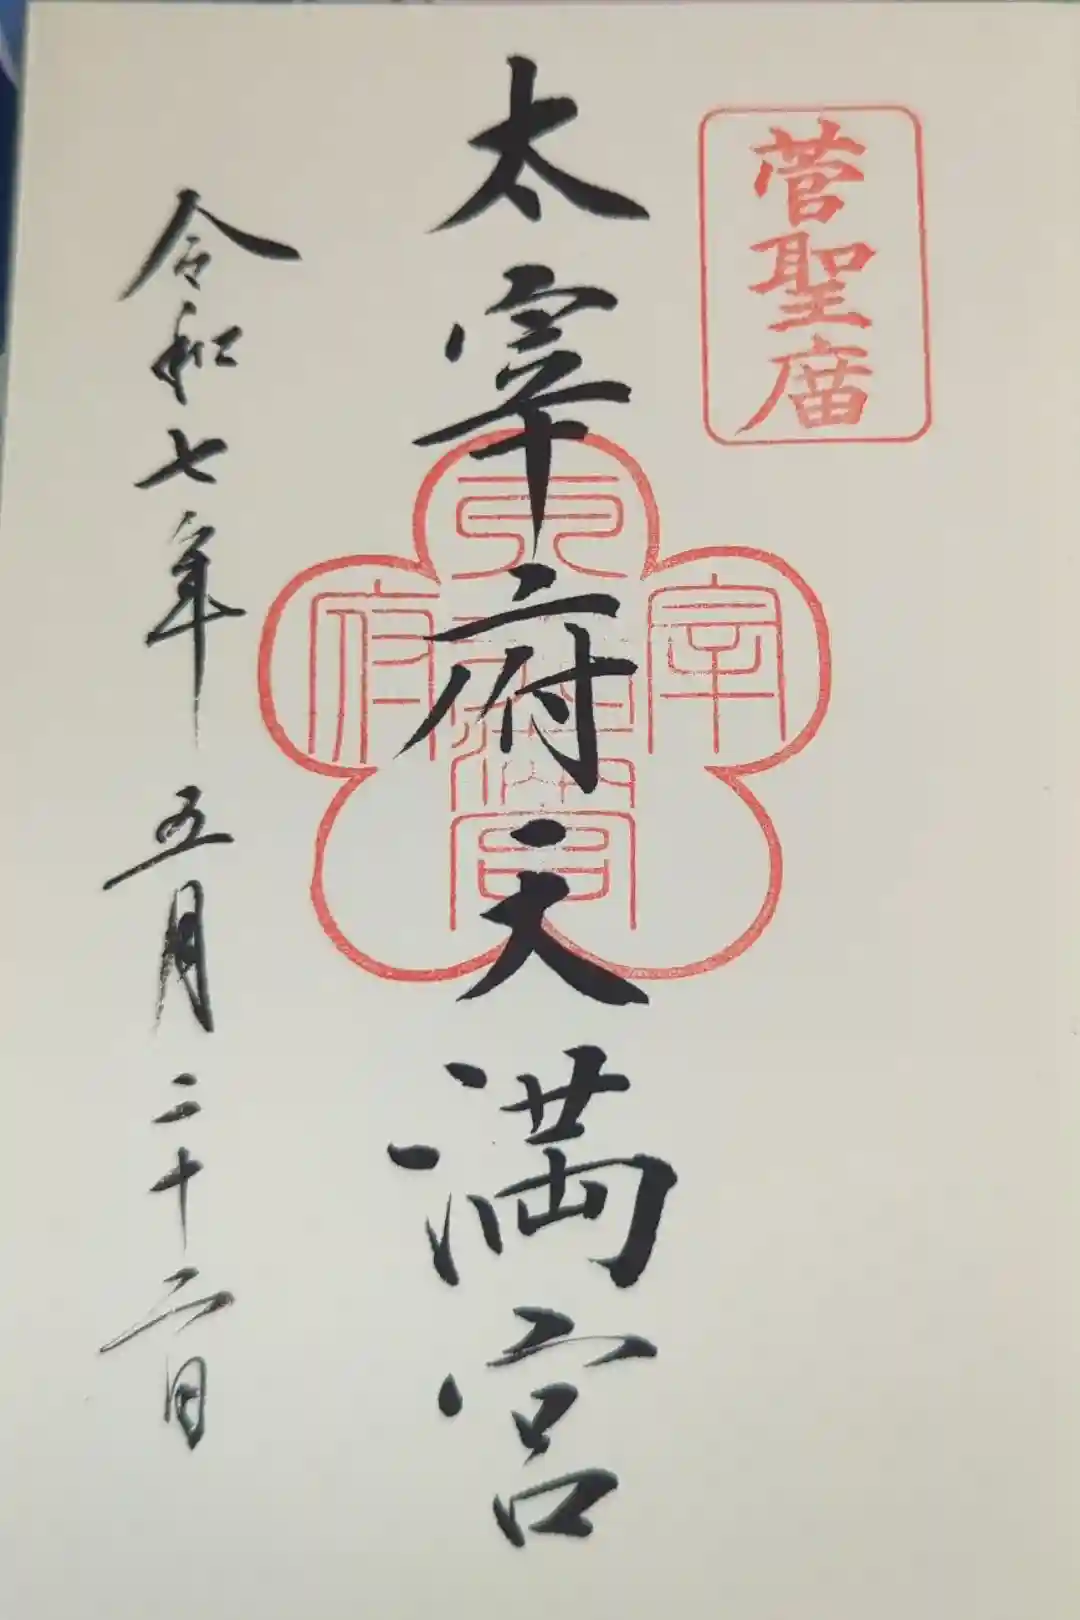 菅聖廟
太宰府天満宮
太宰府天満宮
令和七年五月二十二日